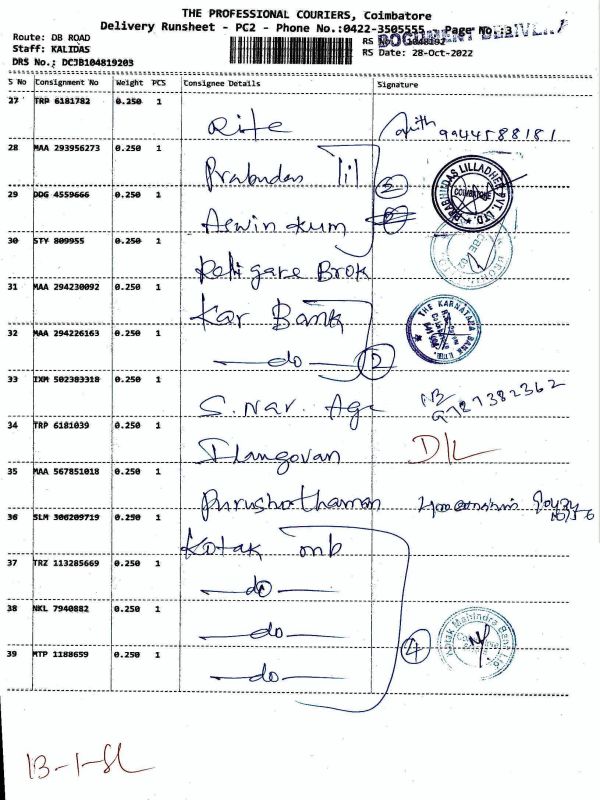 THE PROFESSIONAL COURIERS, Coimbatore
Delivery Runsheet - PC2 - Phone No.:0422-3505555 Page No.:3
DOCUMENT DELIVERY
Route: DB ROAD
Staff: KALIDAS
RS Date: 28-Oct-2022
DRS No.: DCJB104819203
S No Consignment No Weight PCS Consignee Details Signature
27 TRP 6181782 0.250 1
9944588181
28 MAA 293956273 0.250 1 Prabudas
PRABHUDAS LILLADHER PVT. LTD.
COIMBATORE
29 DDG 4559666 0.250 1 Aswin kum
30 STY 809955 0.250 1 Brok
31 MAA 294230092 0.250 1 Kar Bank
THE KARNATAKA BANK LTD.
32 MAA 294226163 0.250 1 do 2
33 IXM 502383318 0.250 1 S. Nav. Age
34 TRP 6181039 0.250 1 Ilangovan D/L
35 MAA 567851018 0.250 1 Purushothaman
36 SLM 306209719 0.250 1 Kotak
37 TRZ 113285669 0.250 1 do
38 NKL 7940882 0.250 1 do
39 MTP 1188659 0.250 1 do 4
Kotak Mahindra Bank Ltd.
13-1-SL